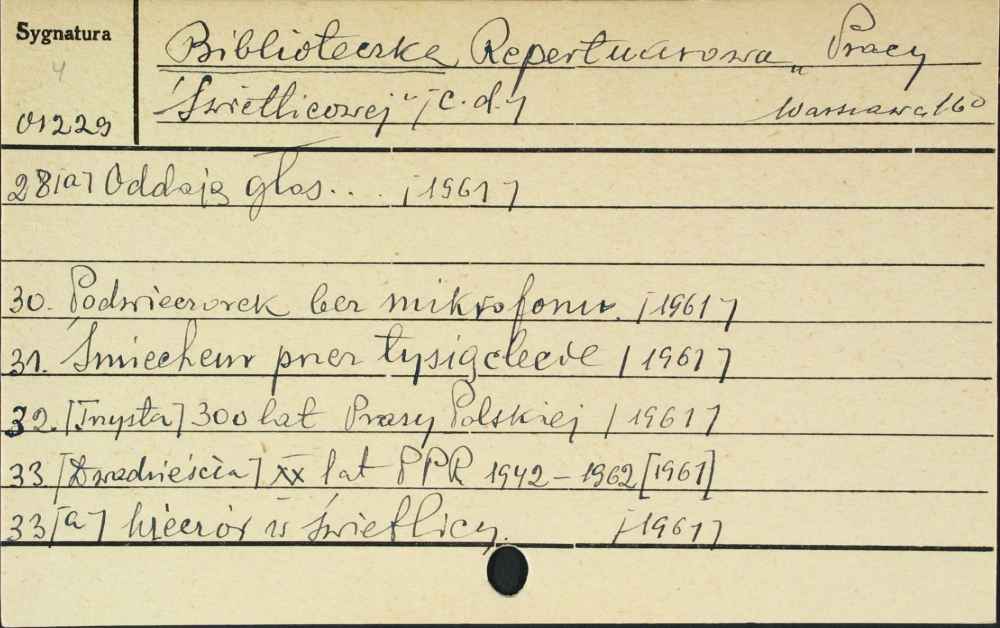 Sygnatura
4
01229
Biblioteczka Repertuarowa „Pracy
Świetlicowej" [c.d.]
Warszawa 160
28[a] Oddają głos... [1961]
30. Podwieczorek bez mikrofonu. [1961]
31. Śmiechem przez tysiąclecie [1961]
32. [Trzysta] 300 lat Prasy Polskiej [1961]
33 [Dwadzieścia] XX lat PPR 1942 - 1962 [1961]
33[a] Wieczór w świetlicy. [1961]